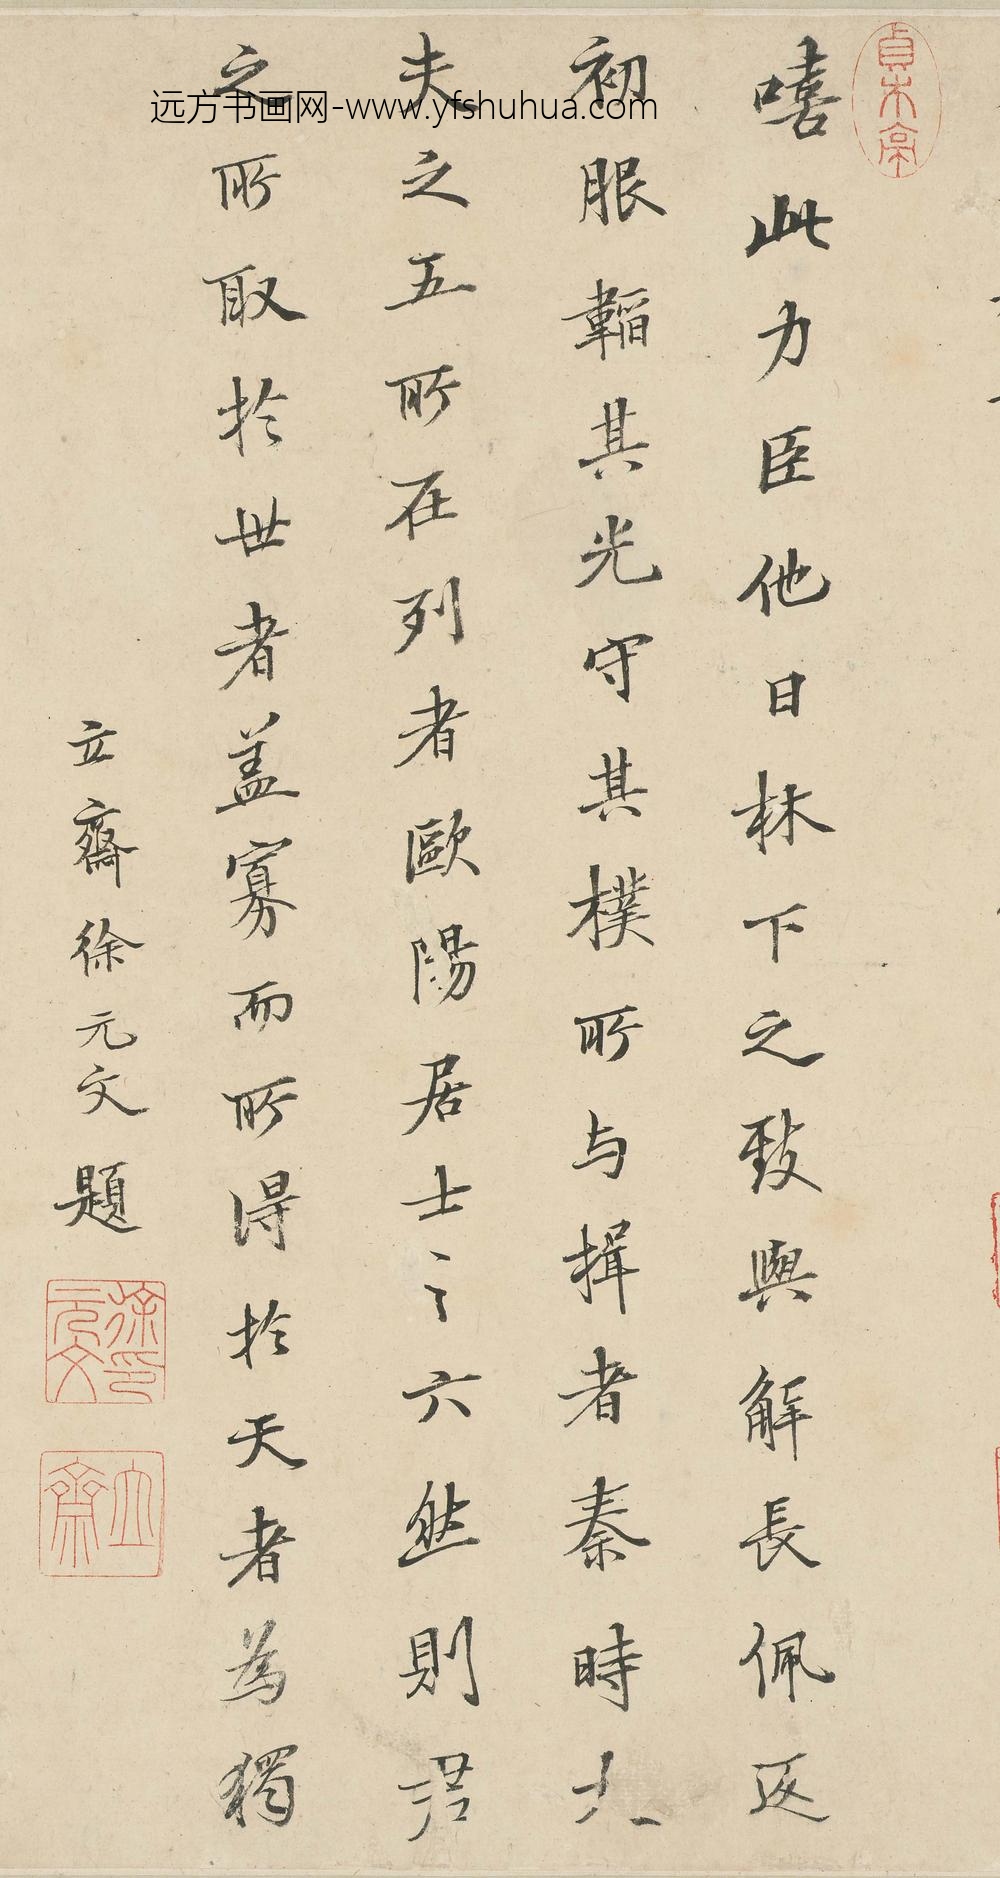 貞木亭
嘻此力臣他日林下之致與解長佩返
初服韜其光守其樸所与揖者秦時大
夫之五所在列者歐陽居士之六然則君
之所取於世者盖寡而所得於天者為獨
立齋徐元文題
徐元文印
立齋
远方书画网-www.yfshuhua.com